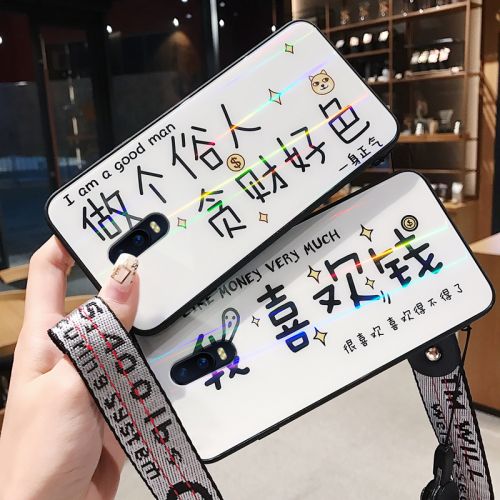 I am a good man
做个俗人
贪财好色
一身正气
LIKE MONEY VERY MUCH
我喜欢钱
很喜欢 喜欢得不得了
400 lbs
system
WILL